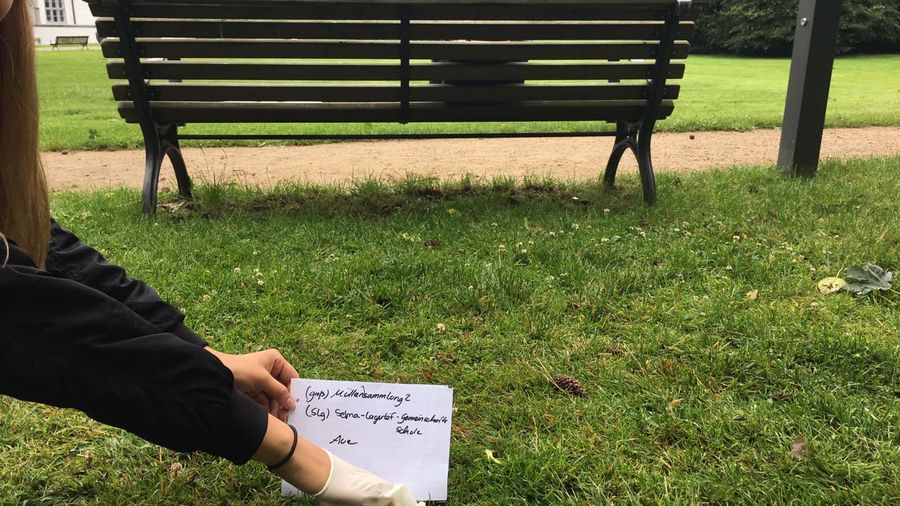 (grp) Müllersammlung2
(Slg) Selma-Lagerlöf-Gemeinschafts
Schule